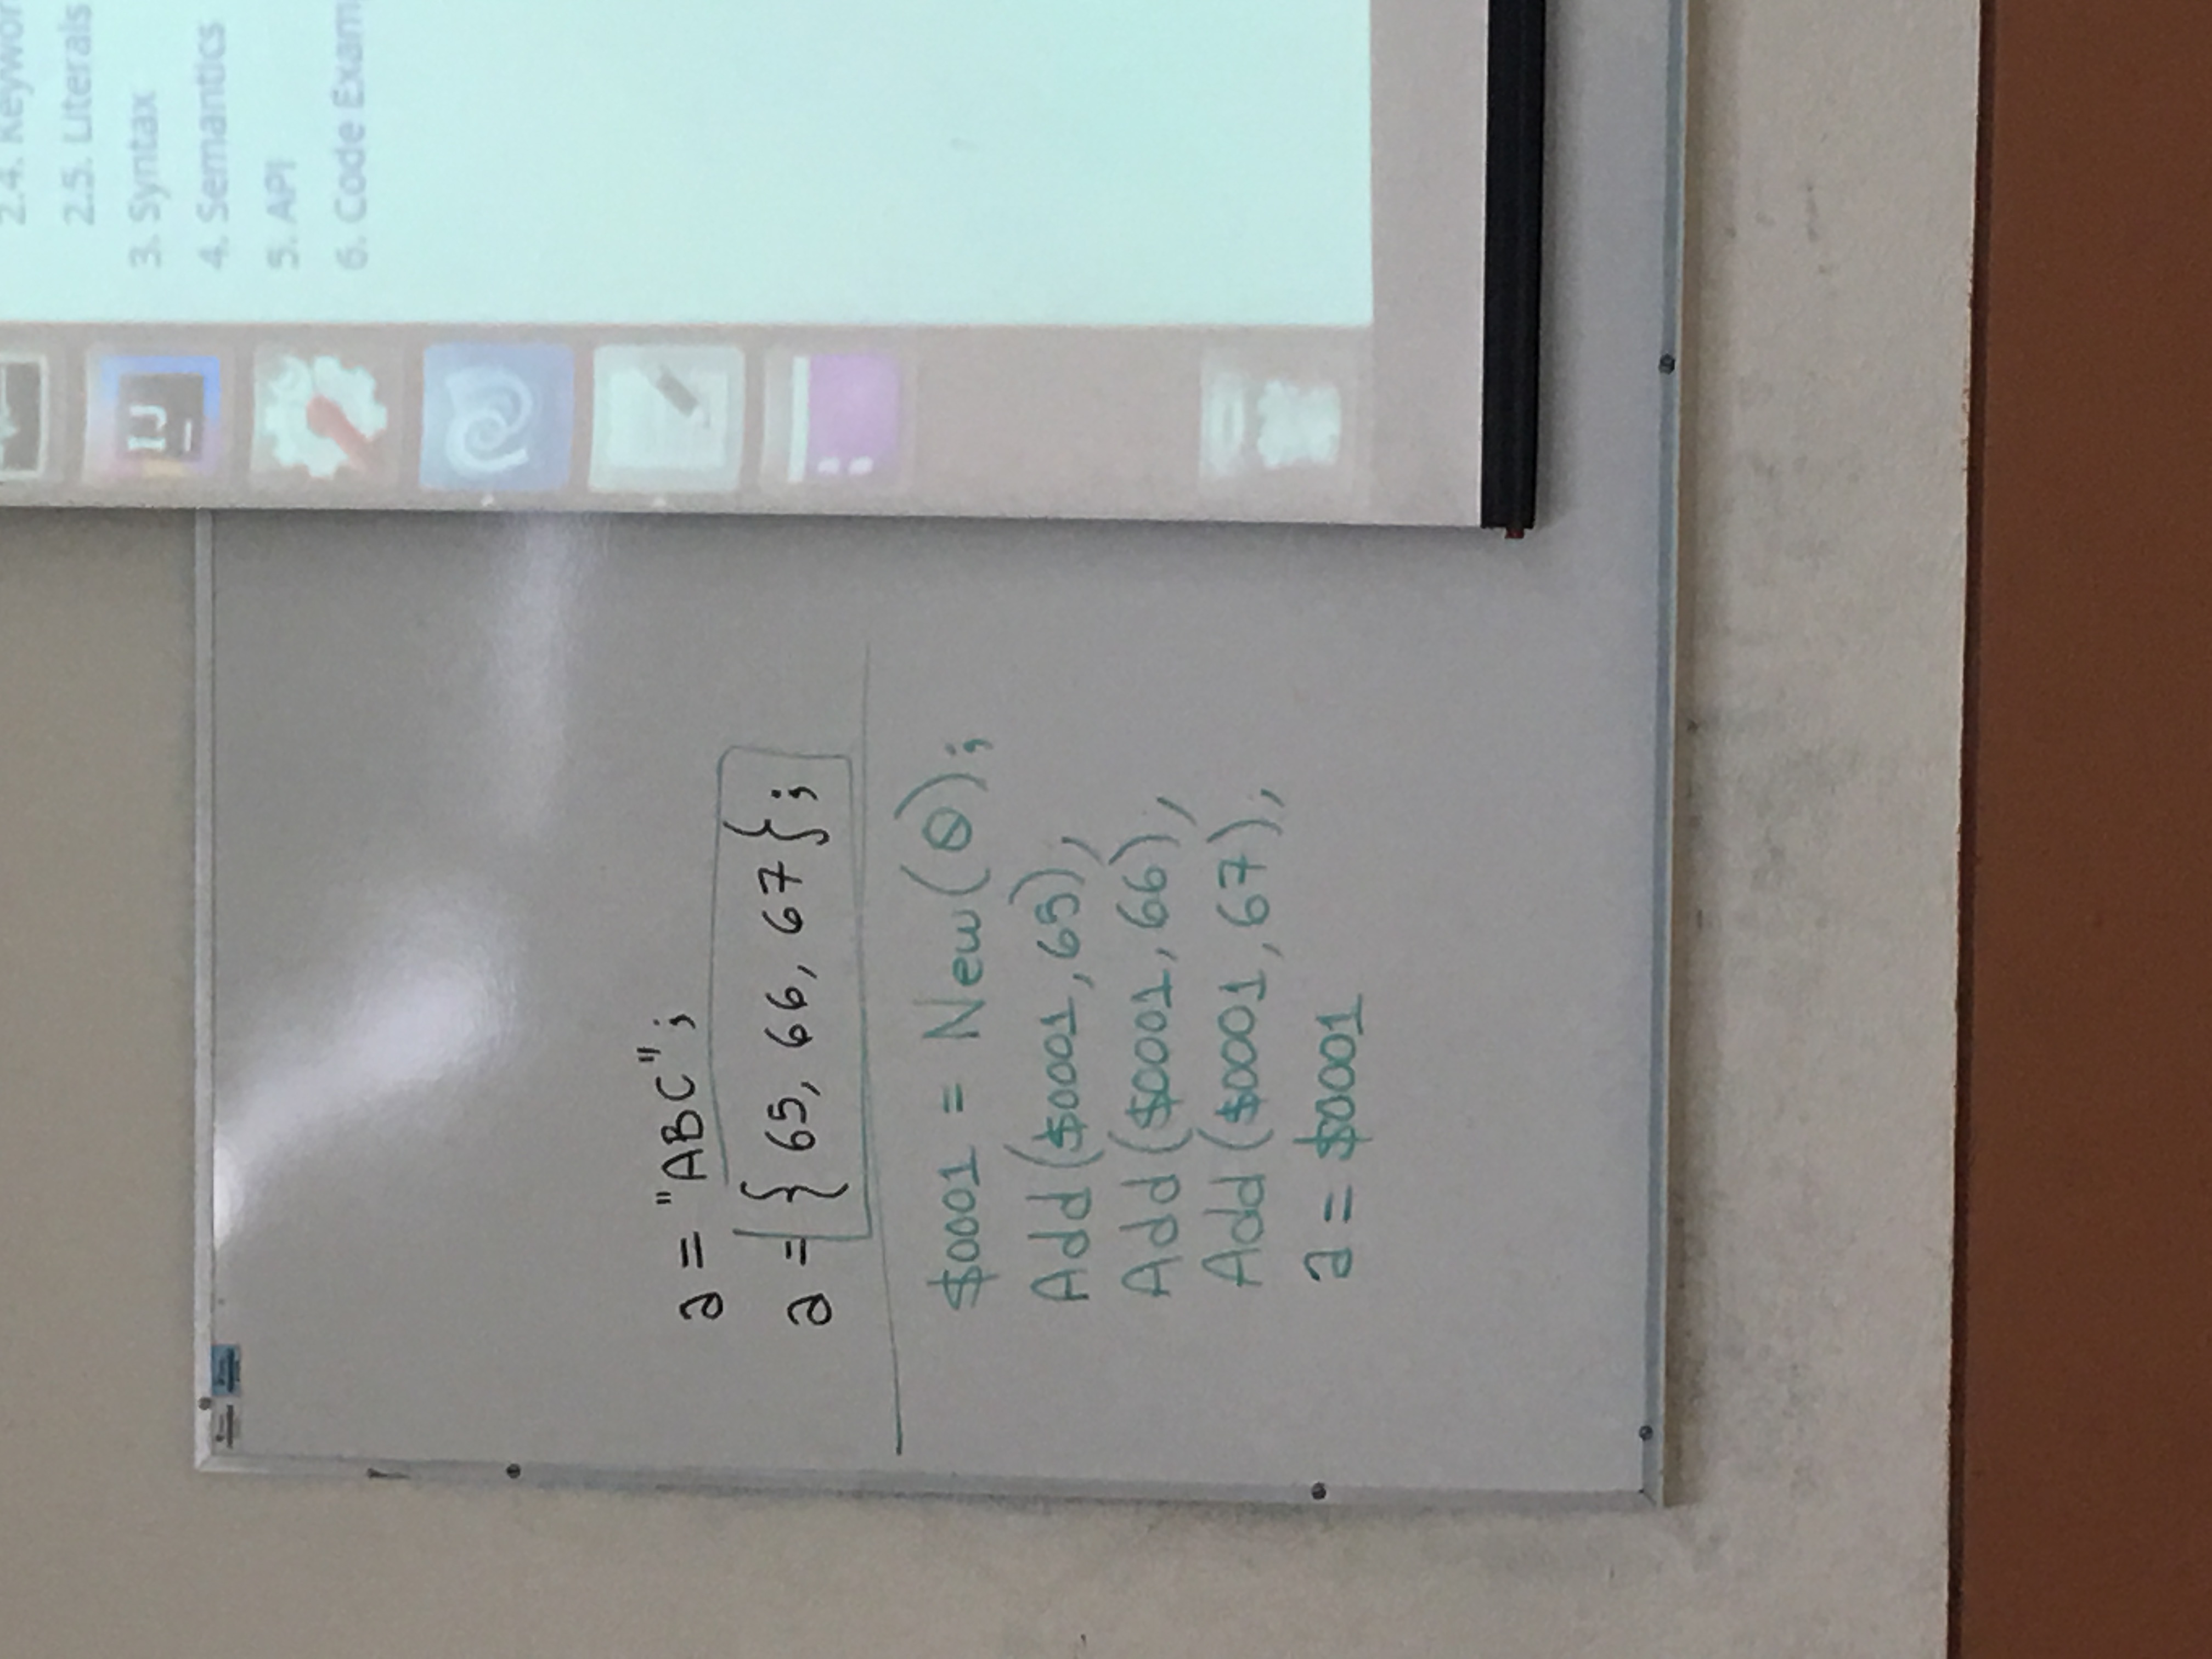 a = "ABC";
a = { 65, 66, 67};
$0001 = New(0);
Add($0001,65),
Add($0001,66),
Add($0001,67),
a = $0001
2.5. Literals
3. Syntax
4. Semantics
5. API
6. Code
IJ